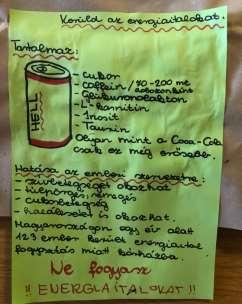 Kerüld az energiaitalokat.
Tartalmaz:
- cukor
- coffein / 70-200 mg
dobozonként
- Glükuronolakton
- L-karnitin
- Inosit
- Taurin
HELL
Olyan mint a Coca-Cola
csak ez még erősebb.
Hatása az emberi szervezetre:
- szívbetegséget okozhat
- túlpörgés, remegés
- cukorbetegség
- halálesetet is okozhat.
Magyarországon egy év alatt
123 ember került energiaital
fogyasztás miatt kórházba.
Ne fogyassz
!! ENERGIAITALOKAT !!